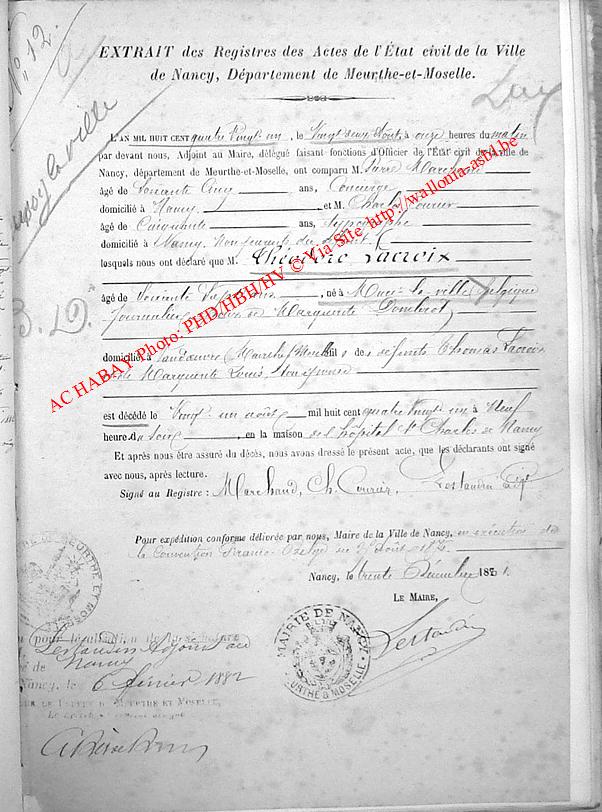 N° 12.
EXTRAIT des Registres des Actes de l'État civil de la Ville
de Nancy, Département de Meurthe-et-Moselle.
L'AN MIL HUIT CENT quatre Vingt un, le Vingt deux Août, à onze heures du matin
par devant nous, Adjoint au Maire, délégué faisant fonctions d'Officier de l'État civil de la ville de
Nancy, département de Meurthe-et-Moselle, ont comparu M. Pierre Marchand
âgé de Soixante Cinq ans, Concierge
domicilié à Nancy, et M. Charles Courier
âgé de Cinquante ans, typographe
domicilié à Nancy, Non parents du défunt
lesquels nous ont déclaré que M. Théodore Lacroix
âgé de Soixante ans, né à la ville Belgique
Journalier, de Marguerite
domicilié à Vandœuvre fils des défunts Thomas Lacroix
et de Marguerite Louis
est décédé le Vingt un août mil huit cent quatre Vingt un à Neuf
heures du soir, en la maison de l'hôpital St Charles de Nancy
Et après nous être assuré du décès, nous avons dressé le présent acte, que les déclarants ont signé
avec nous, après lecture.
Signé au Registre : Marchand, Ch. Courier,
Pour expédition conforme délivrée par nous, Maire de la Ville de Nancy, en exécution de
la Convention Franco-Belge du
Nancy, le trente Décembre 1881.
LE MAIRE,
MAIRIE DE NANCY
MEURTHE & MOSELLE
MEURTHE ET MOSELLE
pour légalisation de la signature
Adjoint au
Nancy
Nancy, le 6 février 1882
AC HABAY Photo: PHD/HBH/HV © Via Site http://wallonia-asbl.be